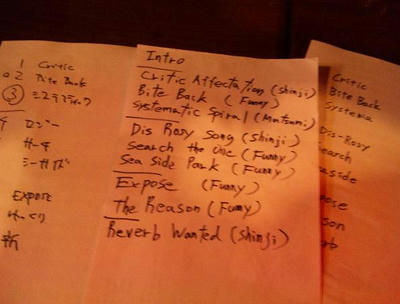 1 Critic
2 Bite Back
3 ミステマティック
4 ロジー
サーチ
シーサイド
Expose
Intro
Critic Affectation (Shinji)
Bite Back (Funny)
Systematic Spiral (Matsumi)
Dis Rosy Song (Shinji)
Search the One (Funny)
Sea Side Park (Funny)
Expose (Funny)
The Reason (Funny)
Reverb Wanted (Shinji)
Critic
Bite Back
Systema
Dis-Rosy
Search
easide
pose
son
rb